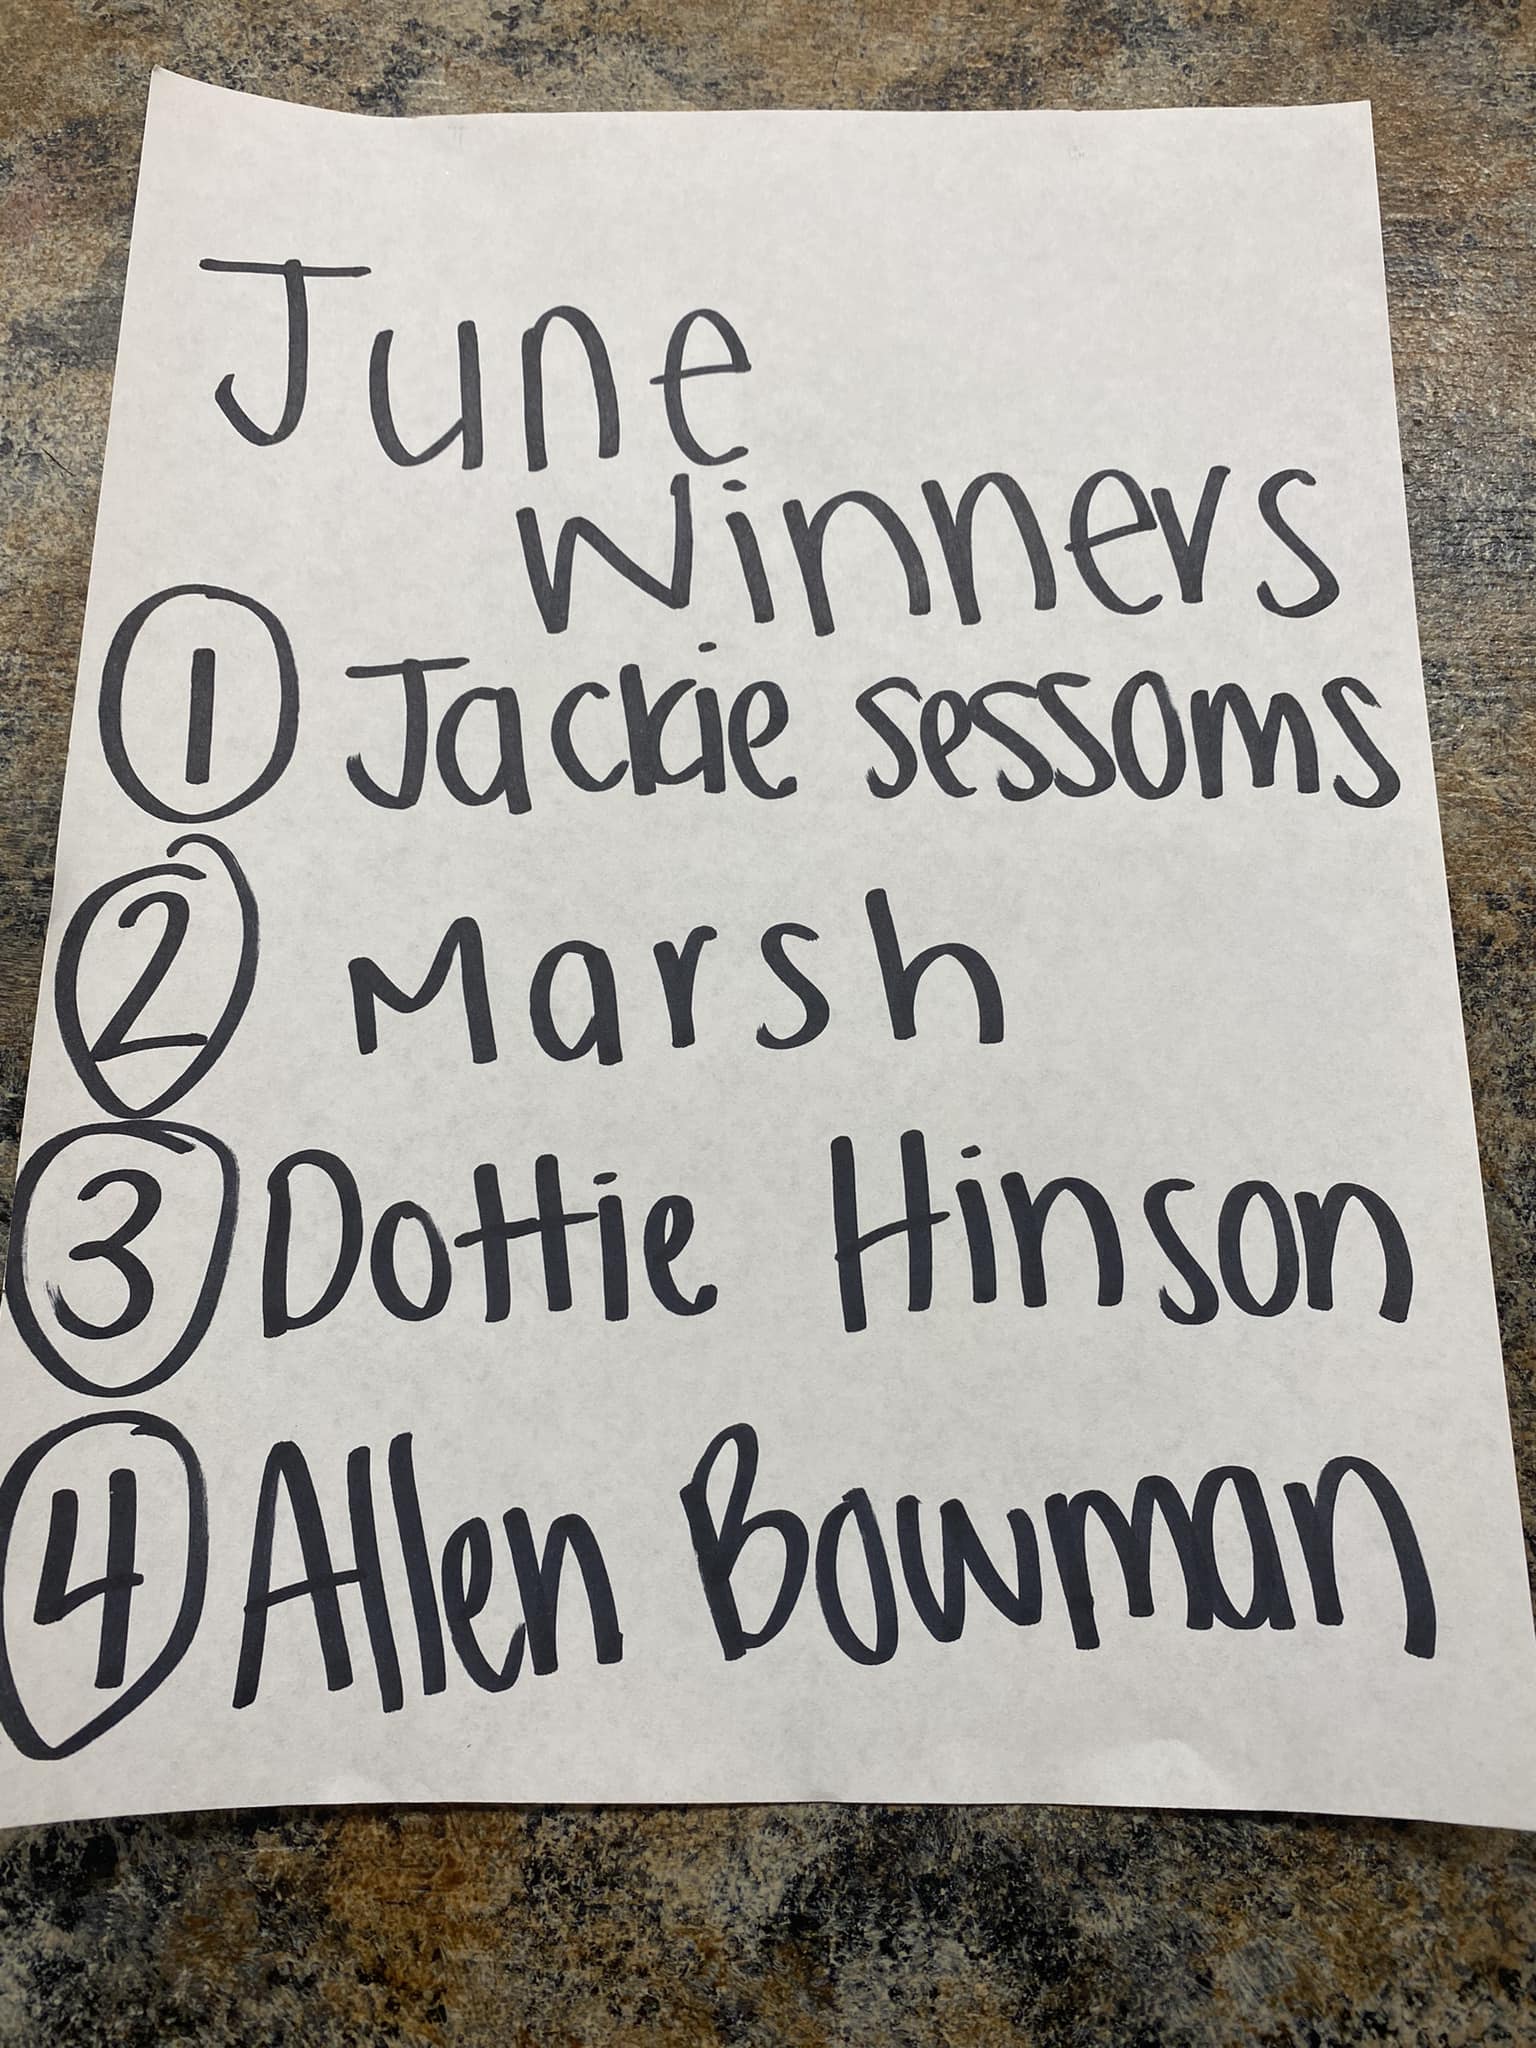 June
Winners
1 Jackie Sessoms
2 Marsh
3 Dottie Hinson
4 Allen Bowman